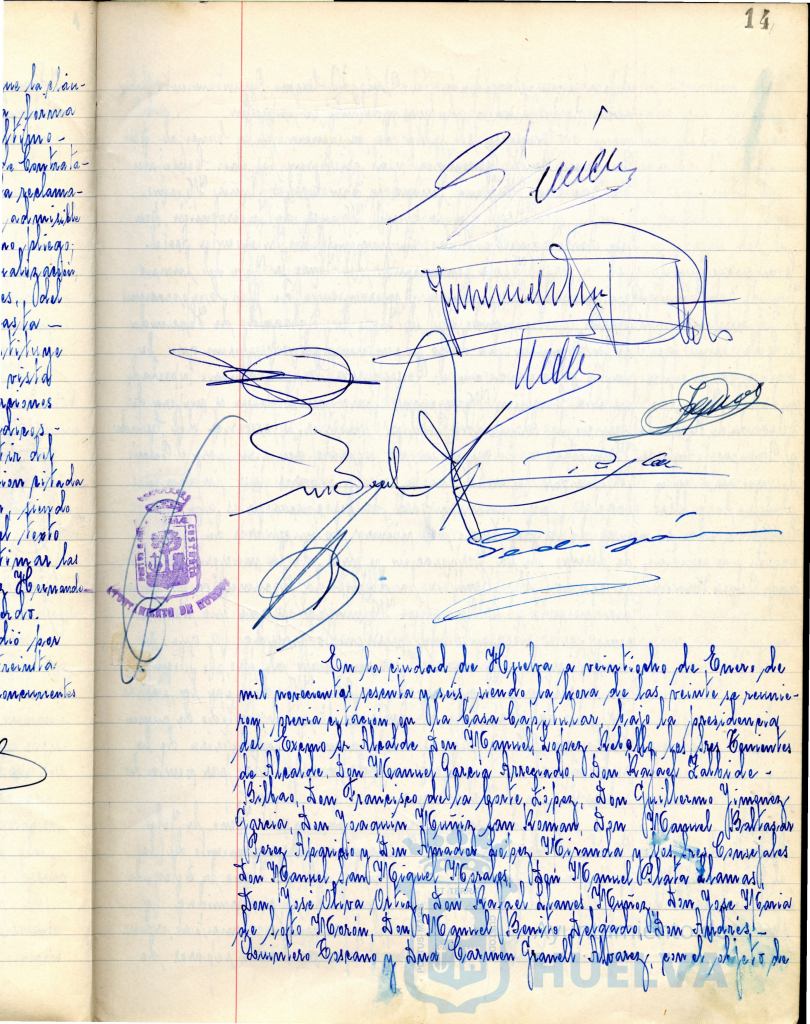 14
me la cláu-
forma
ltimo-
de Contrata-
a reclama-
admisible
no pliego;
alización
es, del
asta-
tituye
vista
rpiones
diros-
tir del
ion citada
siendo
el texto
timar las
z Hernande-
erdo.
dió por
treinta
oncurrentes
PORTUS MARIS ET TERRAE CUSTODIA
AYUNTAMIENTO DE HUELVA
En la ciudad de Huelva a veintiocho de Enero de
mil novecientos sesenta y seis, siendo la hora de las veinte se reunie-
ron, previa citación en la Casa Capitular, bajo la presidencia
del Excmo Sr Alcalde Don Manuel López Rebollo los sres Tenientes
de Alcalde, Don Manuel Garcia Arreciado, Don Rafael Zalbide-
Bilbao, Don Francisco de la Corte López, Don Guillermo Jimenez
Garcia, Don Joaquín Muñiz San Roman, Don Manuel Baltasar
Perez Aparicio y Don Amador Lopez Miranda y los sres Consejales
Don Manuel San Miguel Morales, Don Manuel Plata Llamas,
Don José Oliva Ortiz, Don Rafael Llanes Muñoz, Don Jose Maria
de Soto Morón, Don Manuel Benito Delgado, Don Andrés-
Quintero Toscano y Dna Carmen Granell Alvarez, con el objeto de
HUELVA